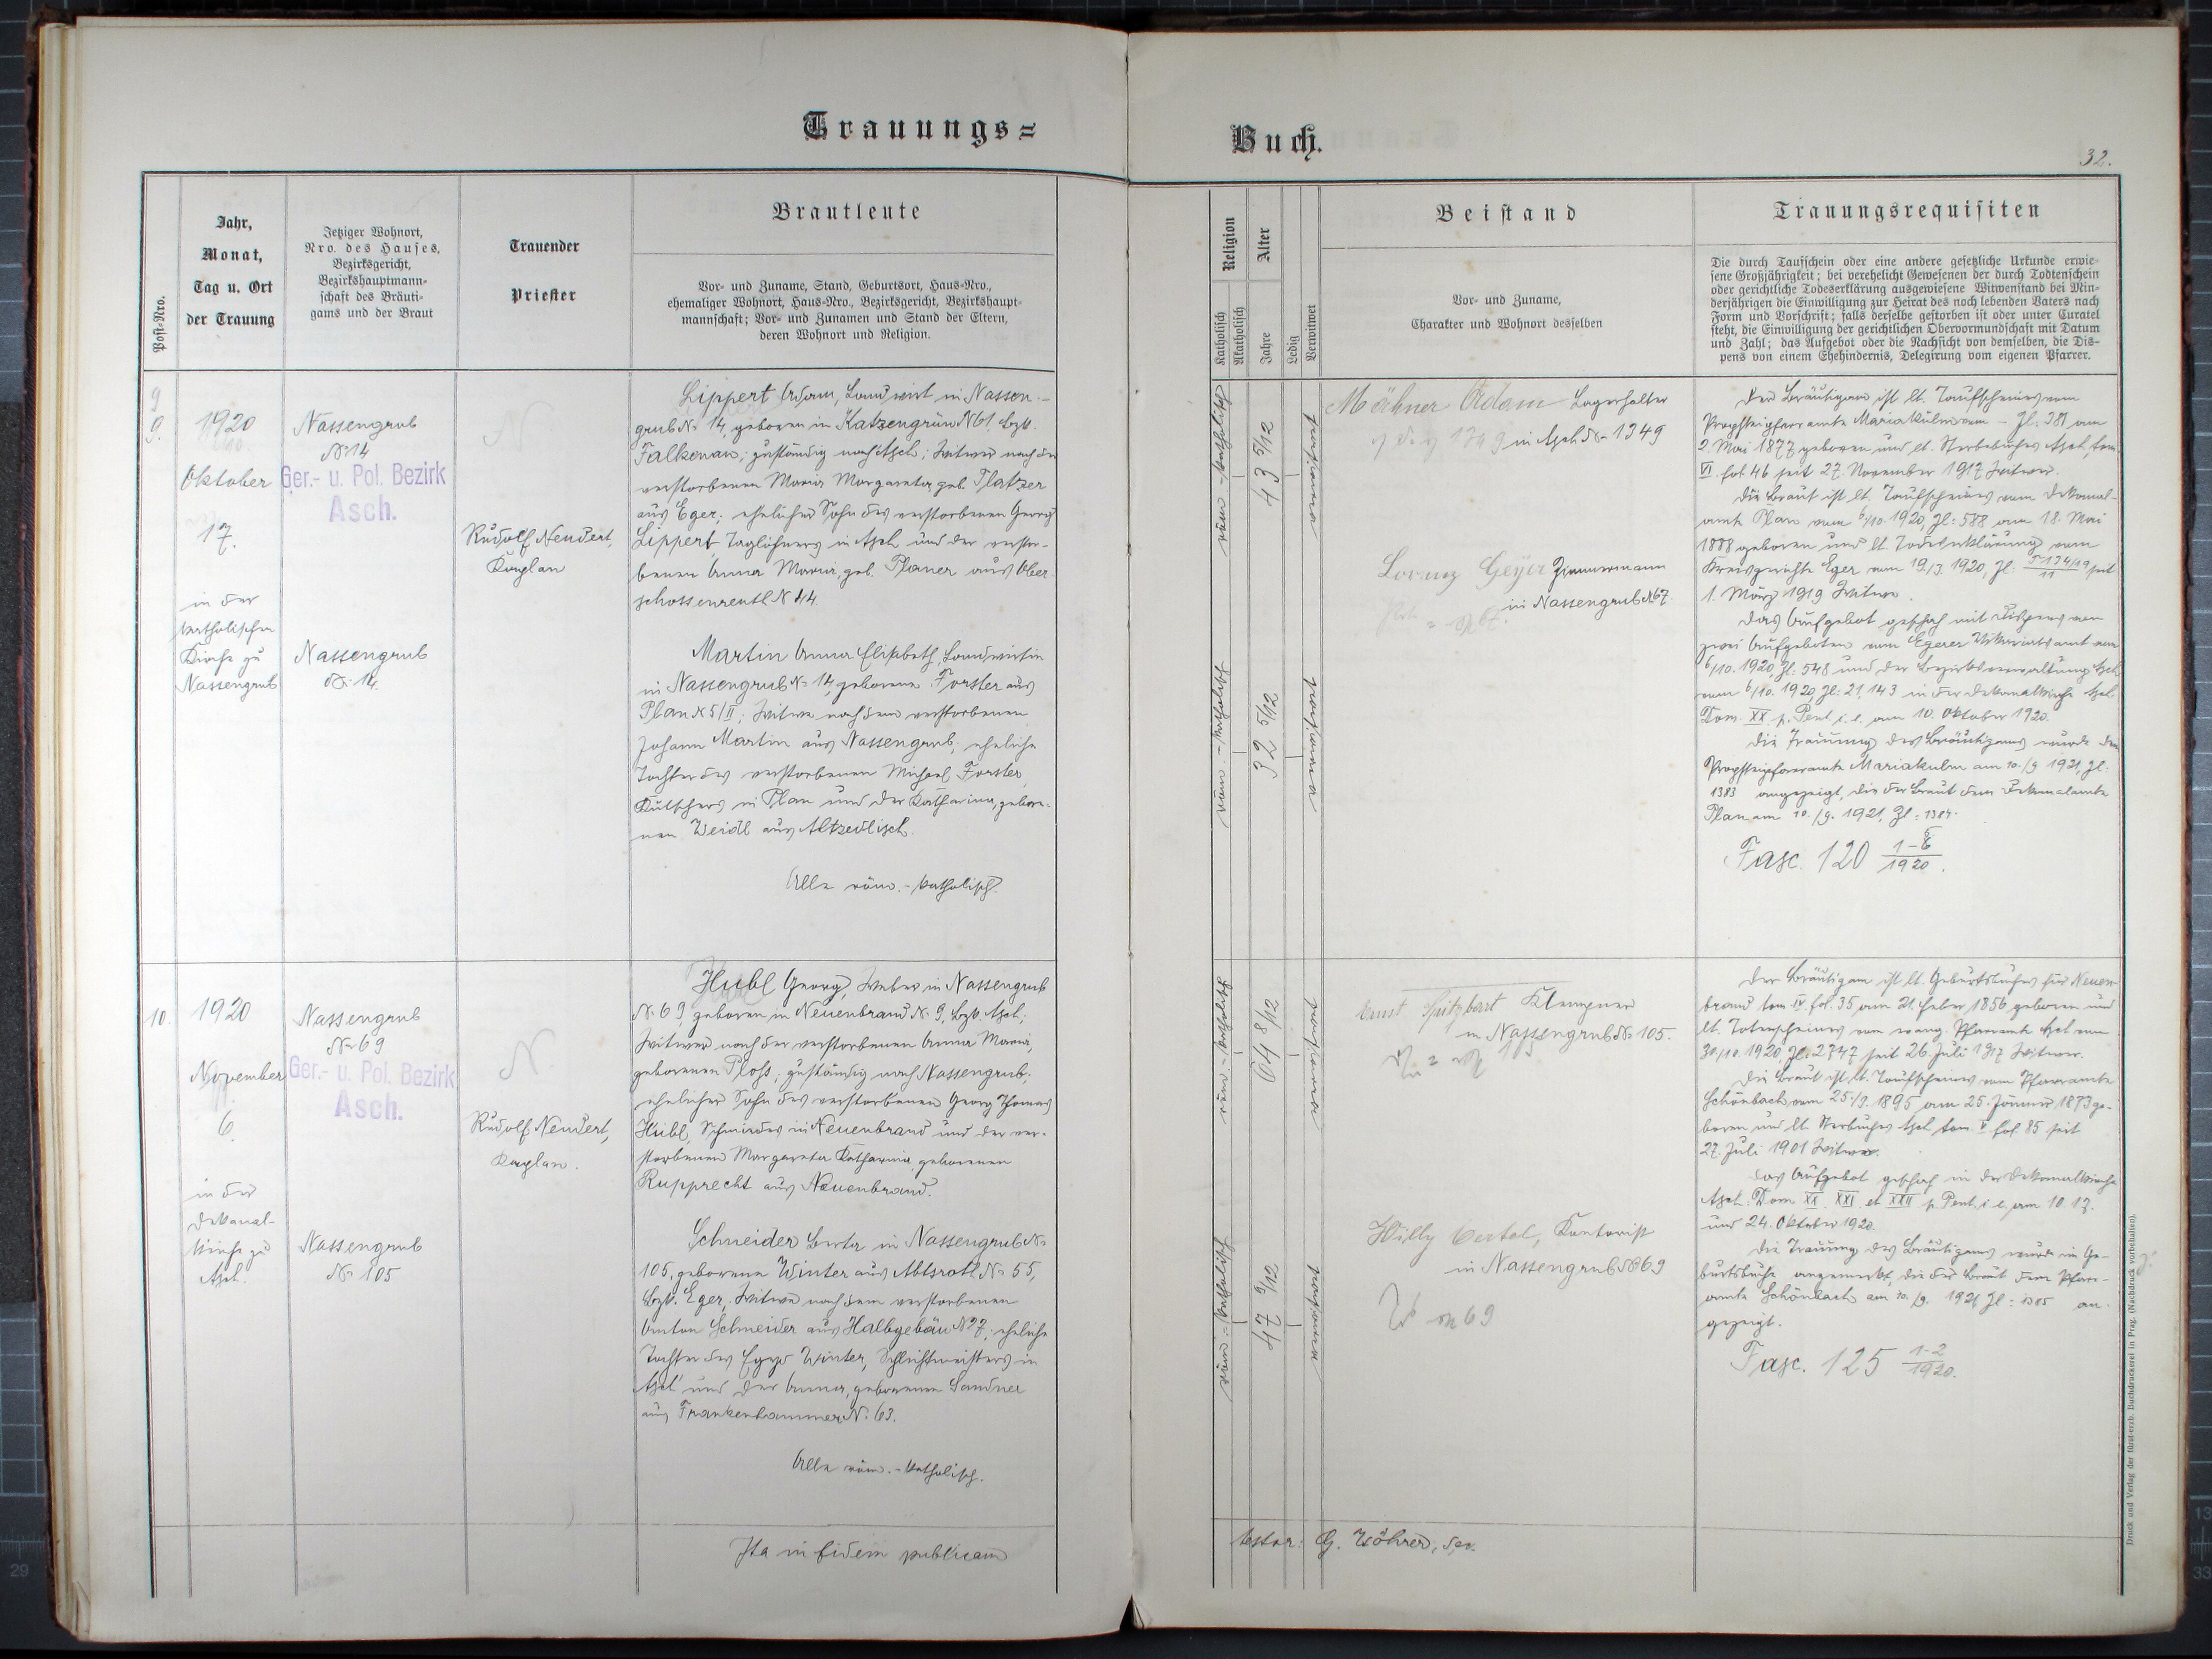 Trauungs=
Buch.
32.
Post-Nro.
Jahr,
Monat,
Tag u. Ort
der Trauung
Jetziger Wohnort,
Nro. des Hauses,
Bezirksgericht,
Bezirkshauptmann-
schaft des Bräuti-
gams und der Braut
Trauender
Priester
Brautleute
Vor- und Zuname, Stand, Geburtsort, Haus-Nro.,
ehemaliger Wohnort, Haus-Nro., Bezirksgericht, Bezirkshaupt-
mannschaft; Vor- und Zunamen und Stand der Eltern,
deren Wohnort und Religion.
Religion
Katholisch
Akatholisch
Alter
Jahre
Ledig
Verwitwet
Beistand
Vor- und Zuname,
Charakter und Wohnort desselben
Trauungsrequisiten
Die durch Taufschein oder eine andere gesetzliche Urkunde erwie-
sene Großjährigkeit; bei verehelicht Gewesenen der durch Todtenschein
oder gerichtliche Todeserklärung ausgewiesene Witwenstand bei Min-
derjährigen die Einwilligung zur Heirat des noch lebenden Vaters nach
Form und Vorschrift; falls derselbe gestorben ist oder unter Curatel
steht, die Einwilligung der gerichtlichen Obervormundschaft mit Datum
und Zahl; das Aufgebot oder die Nachsicht von demselben, die Dis-
pens von einem Ehehindernis, Delegirung vom eigenen Pfarrer.
9
9.
1920
Oktober
17.
in der
katholischen
Kirche zu
Nassengrub
Nassengrub
№ 14
Ger.- u. Pol. Bezirk
Asch.
Nassengrub
№ 14.
N
Rudolf Neudert,
Kaplan
Lippert Adam, Landwirt in Nassen-
grub № 14, geboren in Katzengrün N 61, Bzk.
Falkenau; zuständig nach Asch; Witwer nach der
verstorbenen Maria Margareta, geb. Platzer
aus Eger; ehelicher Sohn des verstorbenen Georg
Lippert, Taglöhners in Asch und der verstor-
benen Anna Maria, geb. Planer aus Ober-
schossenreutl N 44.
Martin Anna Elisabeth, Landwirtin
in Nassengrub № 14, geborene Forster aus
Plan N 5/II; Witwe nach dem verstorbenen
Johann Martin aus Nassengrub; eheliche
Tochter des verstorbenen Michael Forster,
Kutschers in Plan und der Katharina, gebore-
nen Weidl aus Altzedlisch.
Alle röm.-katholisch.
röm.-katholisch
43 5/12
röm.-katholisch
32 5/12
Mähner Adam Lagerhalter
in Asch № 1349
Lorenz Geyer Zimmermann
in Nassengrub № 67.
Der Bräutigam ist lt. Taufscheines vom
Propsteipfarramte Mariakulm vom – Zl. 381 am
2. Mai 1877 geboren und lt. Sterbebuches Asch, tom.
VI. fol. 46 seit 27. November 1917 Witwer.
Die Braut ist lt. Taufscheines vom Dekanal-
amte Plan vom 6/10. 1920, Zl: 588 am 18. Mai
1888 geboren und lt. Todeserklärung vom
Kreisgerichte Eger vom 19./3. 1920, Zl: T 134/19/11 seit
1. März 1919 Witwe.
Das Aufgebot geschah mit Dispens von
zwei Aufgeboten vom Egerer Vikariatsamt vom
6/10. 1920, Zl: 548 und der Bezirksverwaltung Asch
vom 6/10. 1920, Zl: 21.143 in der Dekanalkirche Asch
Dom. XX p. Pent. i. e. am 10. Oktober 1920.
Die Trauung des Bräutigams wurde dem
Propsteipfarramte Mariakulm am 10./9. 1921, Zl:
1383 angezeigt, die der Braut dem Dekanalamte
Plan am 10./9. 1921, Zl: 1384.
Fasc. 120 1-6/1920.
10.
1920
November
6.
in der
Dekanal-
kirche zu
Asch.
Nassengrub
№ 69
Ger.- u. Pol. Bezirk
Asch.
Nassengrub
№ 105
N.
Rudolf Neudert,
Kaplan.
Hubl Georg, Weber in Nassengrub
№ 69, geboren in Neuenbrand № 9, Bzk. Asch;
Witwer nach der verstorbenen Anna Maria,
geborenen Ploss; zuständig nach Nassengrub;
ehelicher Sohn des verstorbenen Georg Thomas
Hubl, Schmiedes in Neuenbrand und der ver-
storbenen Margareta Katharina, geborenen
Rupprecht aus Neuenbrand.
Schneider Berta in Nassengrub №
105, geborene Winter aus Abtsroth № 55,
Bzk. Eger; Witwe nach dem verstorbenen
Anton Schneider aus Halbgebäu № 27; eheliche
Tochter des Egyd Winter, Schlichtmeisters in
Asch und der Anna, geborenen Sandner
aus Frankenhammer № 63.
Alle röm.-katholisch.
röm.-katholisch
64 8/12
röm.-katholisch
47 9/12
Ernst Spitzbart Klempner
in Nassengrub № 105.
Willy Oertel, Kontorist
in Nassengrub № 69
Der Bräutigam ist lt. Geburtsbuches für Neuen-
brand tom. IV fol. 35 am 21. Feber 1856 geboren und
lt. Totenscheines vom evang. Pfarramte Asch vom
30/10. 1920 Zl: 2747 seit 26. Juli 1917 Witwer.
Die Braut ist lt. Taufscheines vom Pfarramte
Schönbach vom 25./9. 1895 am 25. Jänner 1873 ge-
boren und lt. Sterbuches Asch tom. V fol. 85 seit
27. Juli 1901 Witwe.
Das Aufgebot geschah in der Dekanalkirche
Asch. Dom XX. XXI. et XXII p. Pent. i. e. am 10. 17.
und 24. Oktober 1920.
Die Trauung des Bräutigams wurde im Ge-
burtsbuche angemerkt, die der Braut dem Pfarr-
amte Schönbach am 10./9. 1921 Zl: 1385 an-
gezeigt.
Fasc. 125 1-2/1920.
Ita in fidem publicam
testor: G. Wöhrer, Dex.
Druck und Verlag der fürst-erzb. Buchdruckerei in Prag. (Nachdruck vorbehalten).